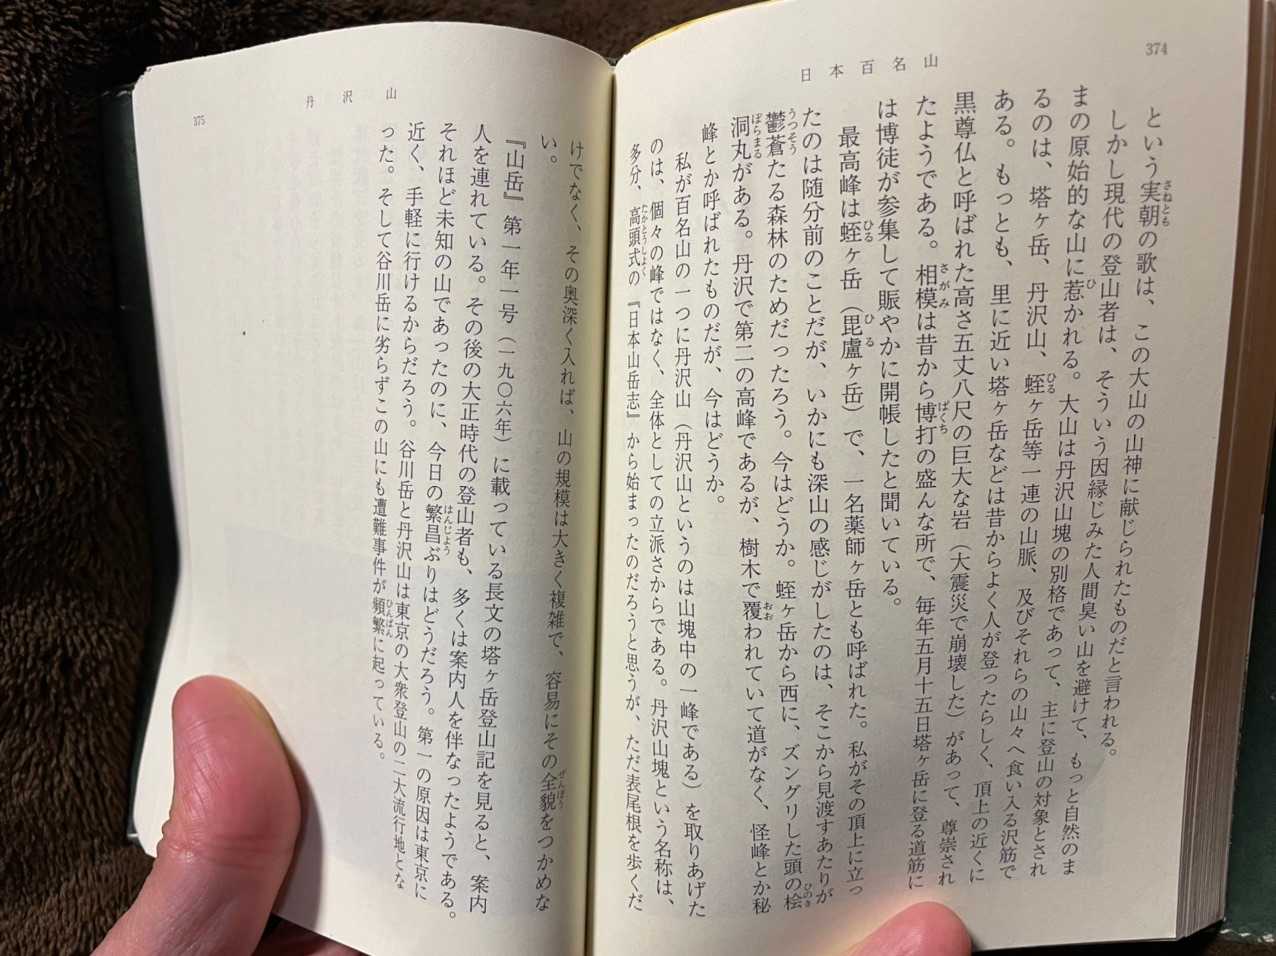 374
日本百名山
という実朝の歌は、この大山の山神に献じられたものだと言われる。
しかし現代の登山者は、そういう因縁じみた人間臭い山を避けて、もっと自然のま
まの原始的な山に惹かれる。大山は丹沢山塊の別格であって、主に登山の対象とされ
るのは、塔ヶ岳、丹沢山、蛭ヶ岳等一連の山脈、及びそれらの山々へ食い入る沢筋で
ある。もっとも、里に近い塔ヶ岳などは昔からよく人が登ったらしく、頂上の近くに
黒尊仏と呼ばれた高さ五丈八尺の巨大な岩（大震災で崩壊した）があって、尊崇され
たようである。相模は昔から博打の盛んな所で、毎年五月十五日塔ヶ岳に登る道筋に
は博徒が参集して賑やかに開帳したと聞いている。
最高峰は蛭ヶ岳（毘盧ヶ岳）で、一名薬師ヶ岳とも呼ばれた。私がその頂上に立っ
たのは随分前のことだが、いかにも深山の感じがしたのは、そこから見渡すあたりが
鬱蒼たる森林のためだったろう。今はどうか。蛭ヶ岳から西に、ズングリした頭の桧
洞丸がある。丹沢で第二の高峰であるが、樹木で覆われていて道がなく、怪峰とか秘
峰とか呼ばれたものだが、今はどうか。
私が百名山の一つに丹沢山（丹沢山というのは山塊中の一峰である）を取りあげた
のは、個々の峰ではなく、全体としての立派さからである。丹沢山塊という名称は、
多分、高頭式の『日本山岳志』から始まったのだろうと思うが、ただ表尾根を歩くだ
丹沢山
375
けでなく、その奥深く入れば、山の規模は大きく複雑で、容易にその全貌をつかめな
い。
『山岳』第一年一号（一九〇六年）に載っている長文の塔ヶ岳登山記を見ると、案内
人を連れている。その後の大正時代の登山者も、多くは案内人を伴なったようである。
それほど未知の山であったのに、今日の繁昌ぶりはどうだろう。第一の原因は東京に
近く、手軽に行けるからだろう。谷川岳と丹沢山は東京の大衆登山の二大流行地とな
った。そして谷川岳に劣らずこの山にも遭難事件が頻繁に起っている。